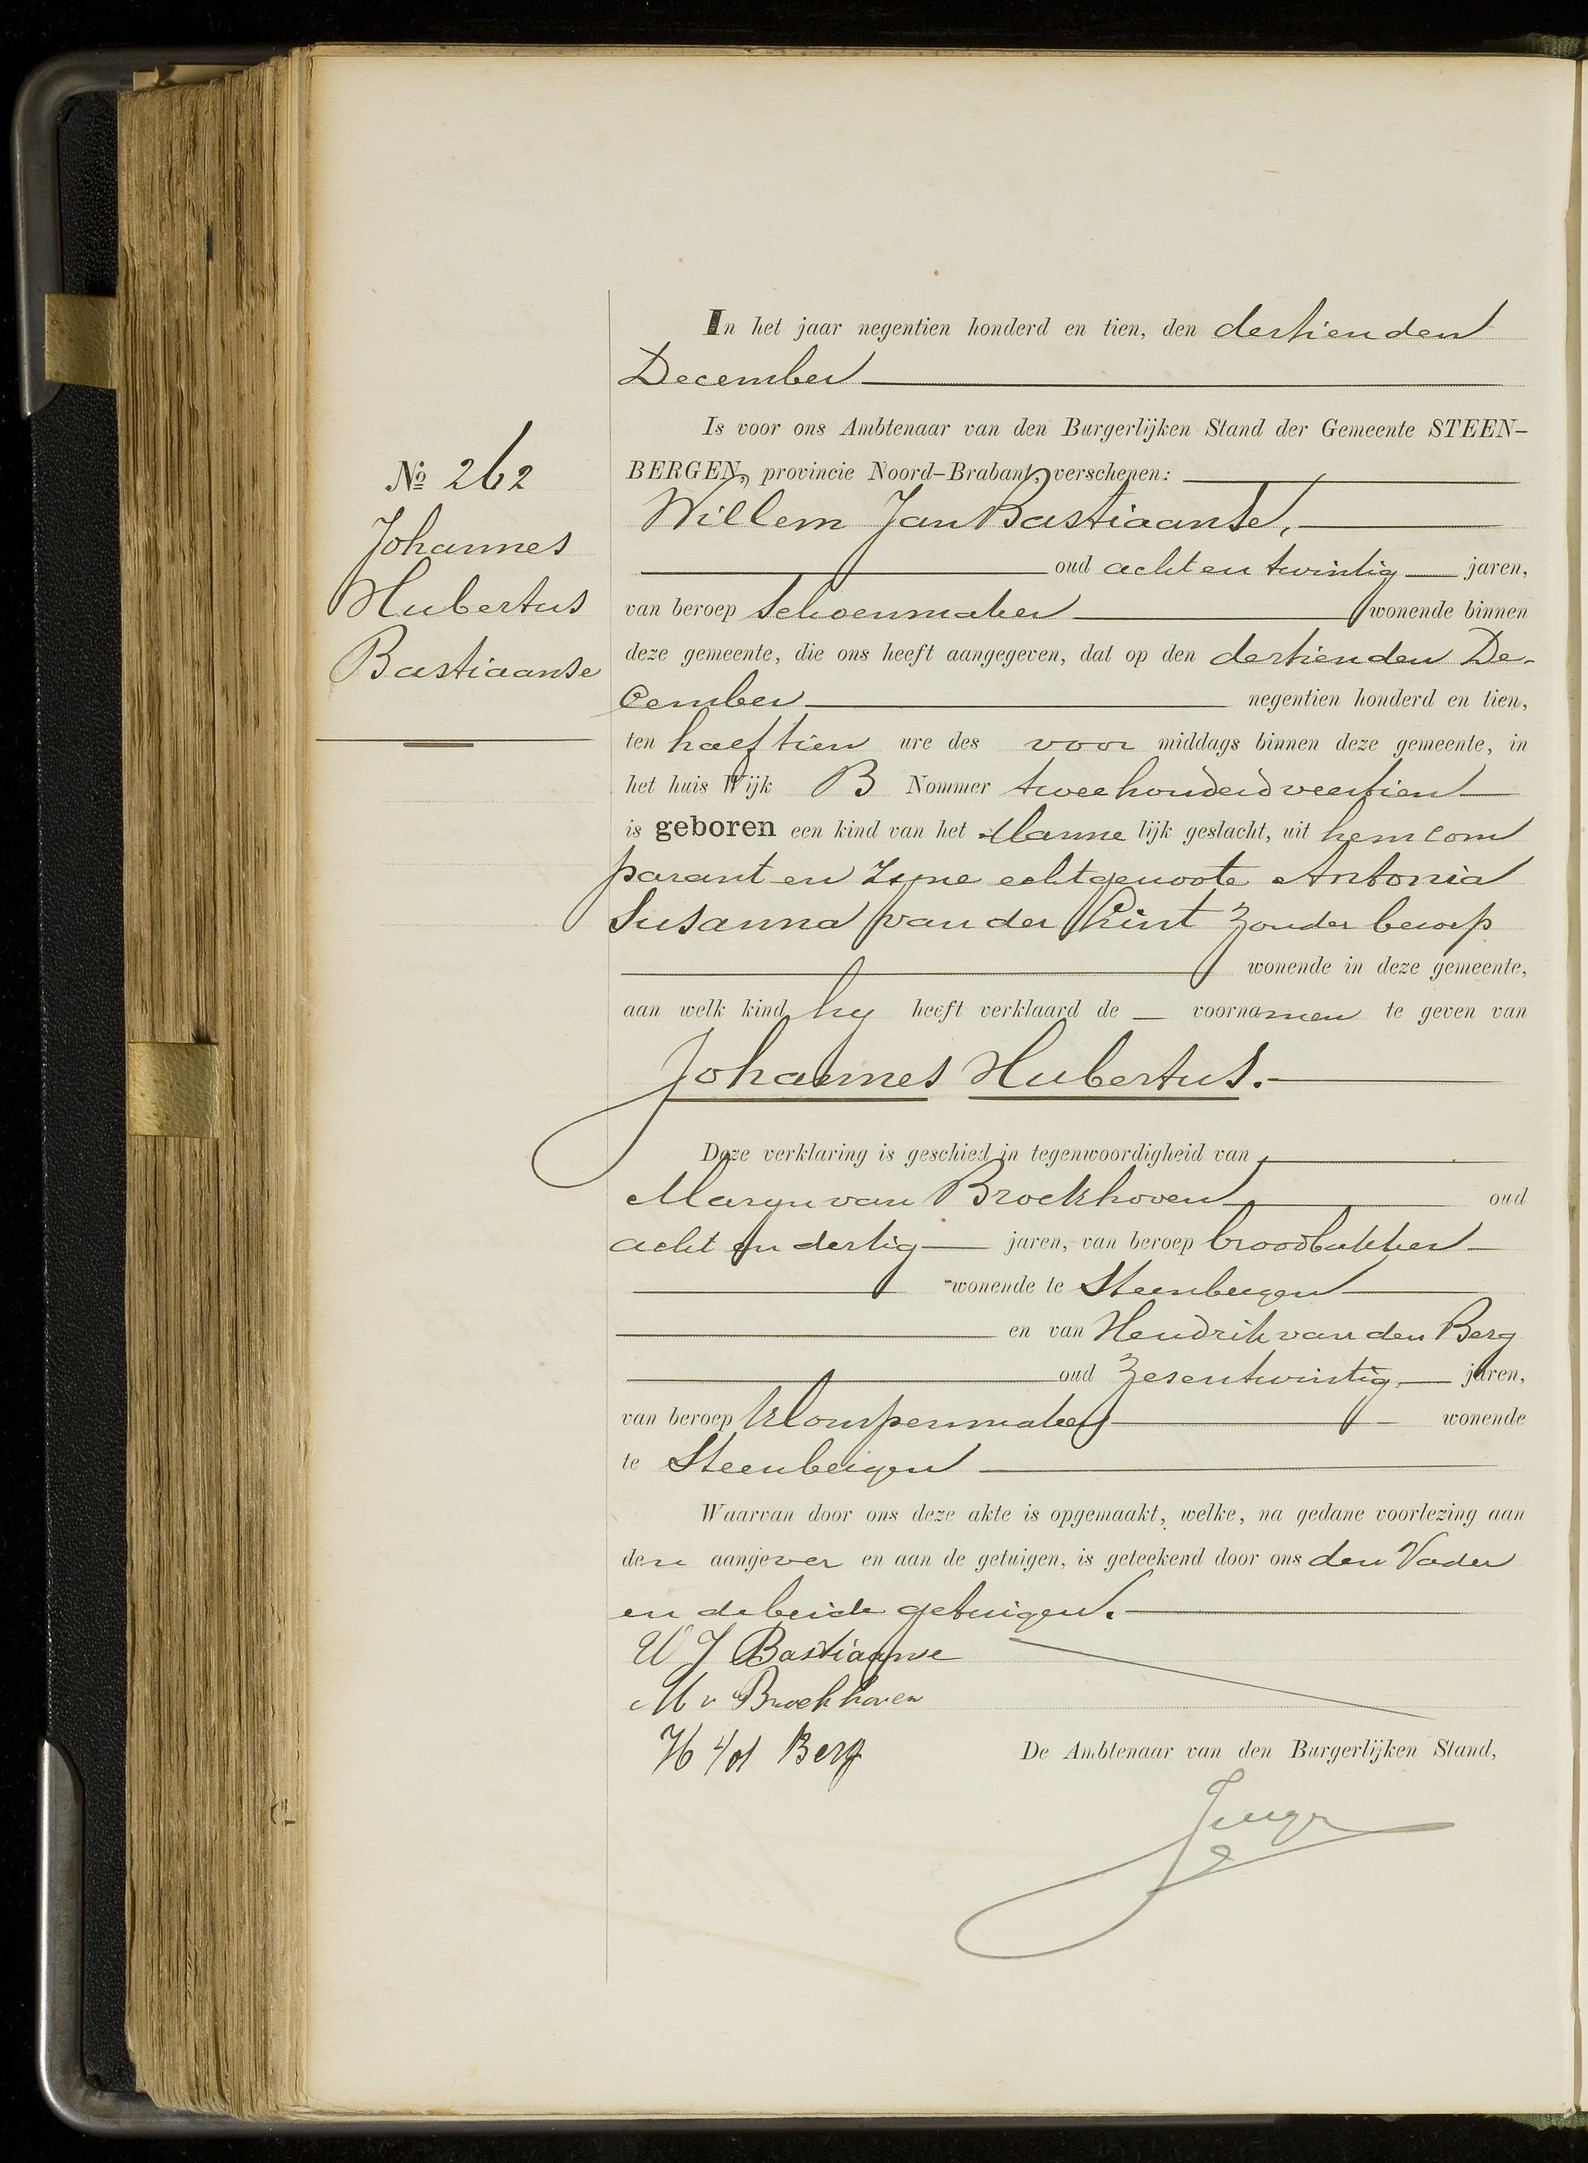 No 262
Johannes
Hubertus
Bastiaanse
In het jaar negentien honderd en tien, den dertienden
December
Is voor ons Ambtenaar van den Burgerlijken Stand der Gemeente STEEN-
BERGEN, provincie Noord-Brabant, verschenen:
Willem Jan Bastiaanse,
oud acht en twintig jaren,
van beroep schoenmaker wonende binnen
deze gemeente, die ons heeft aangegeven, dat op den dertienden De-
cember negentien honderd en tien,
ten half tien ure des voor middags binnen deze gemeente, in
het huis Wijk B Nommer tweehonderd veertien
is geboren een kind van het Manne lijk geslacht, uit hem com
parant en zyne echtgenoote Antonia
Susanna van der Pint zonder beroep
wonende in deze gemeente,
aan welk kind hy heeft verklaard de voornamen te geven van
Johannes Hubertus.
Deze verklaring is geschied in tegenwoordigheid van
Maryn van Broekhoven oud
acht en dertig jaren, van beroep broodbakker
wonende te Steenbergen
en van Hendrik van den Berg
oud zesentwintig jaren,
van beroep klompenmaker wonende
te Steenbergen
Waarvan door ons deze akte is opgemaakt, welke, na gedane voorlezing aan
den aangever en aan de getuigen, is geteekend door ons den Vader
en de beide getuigen.
W J Bastiaanse
M v Broekhoven
H v/d Berg
De Ambtenaar van den Burgerlijken Stand,